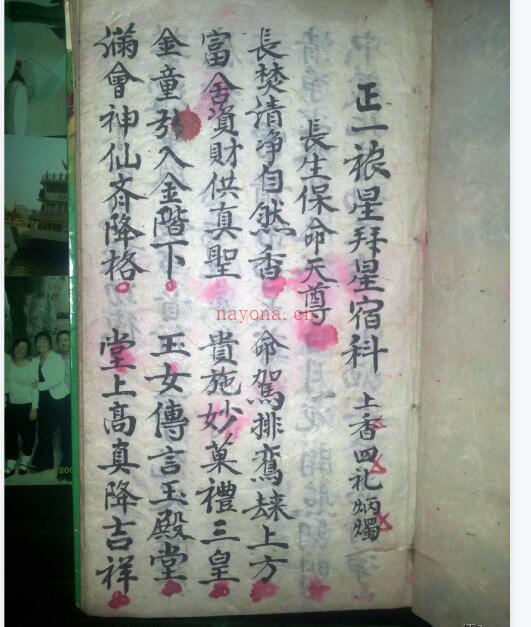 正一禳星拜星宿科 上香四礼炳燭
長生保命天尊
長焚清净自然香 命駕排鸞 上方
富舍資財供真聖 貴施妙菓禮三皇
金童引入金階下 玉女傳言玉殿堂
滿會神仙齊降格 堂上高真降吉祥
nayona.cn